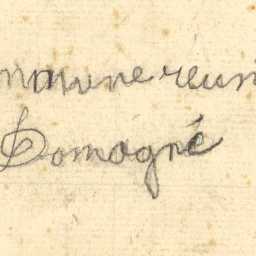 mmune reuni
Domagné